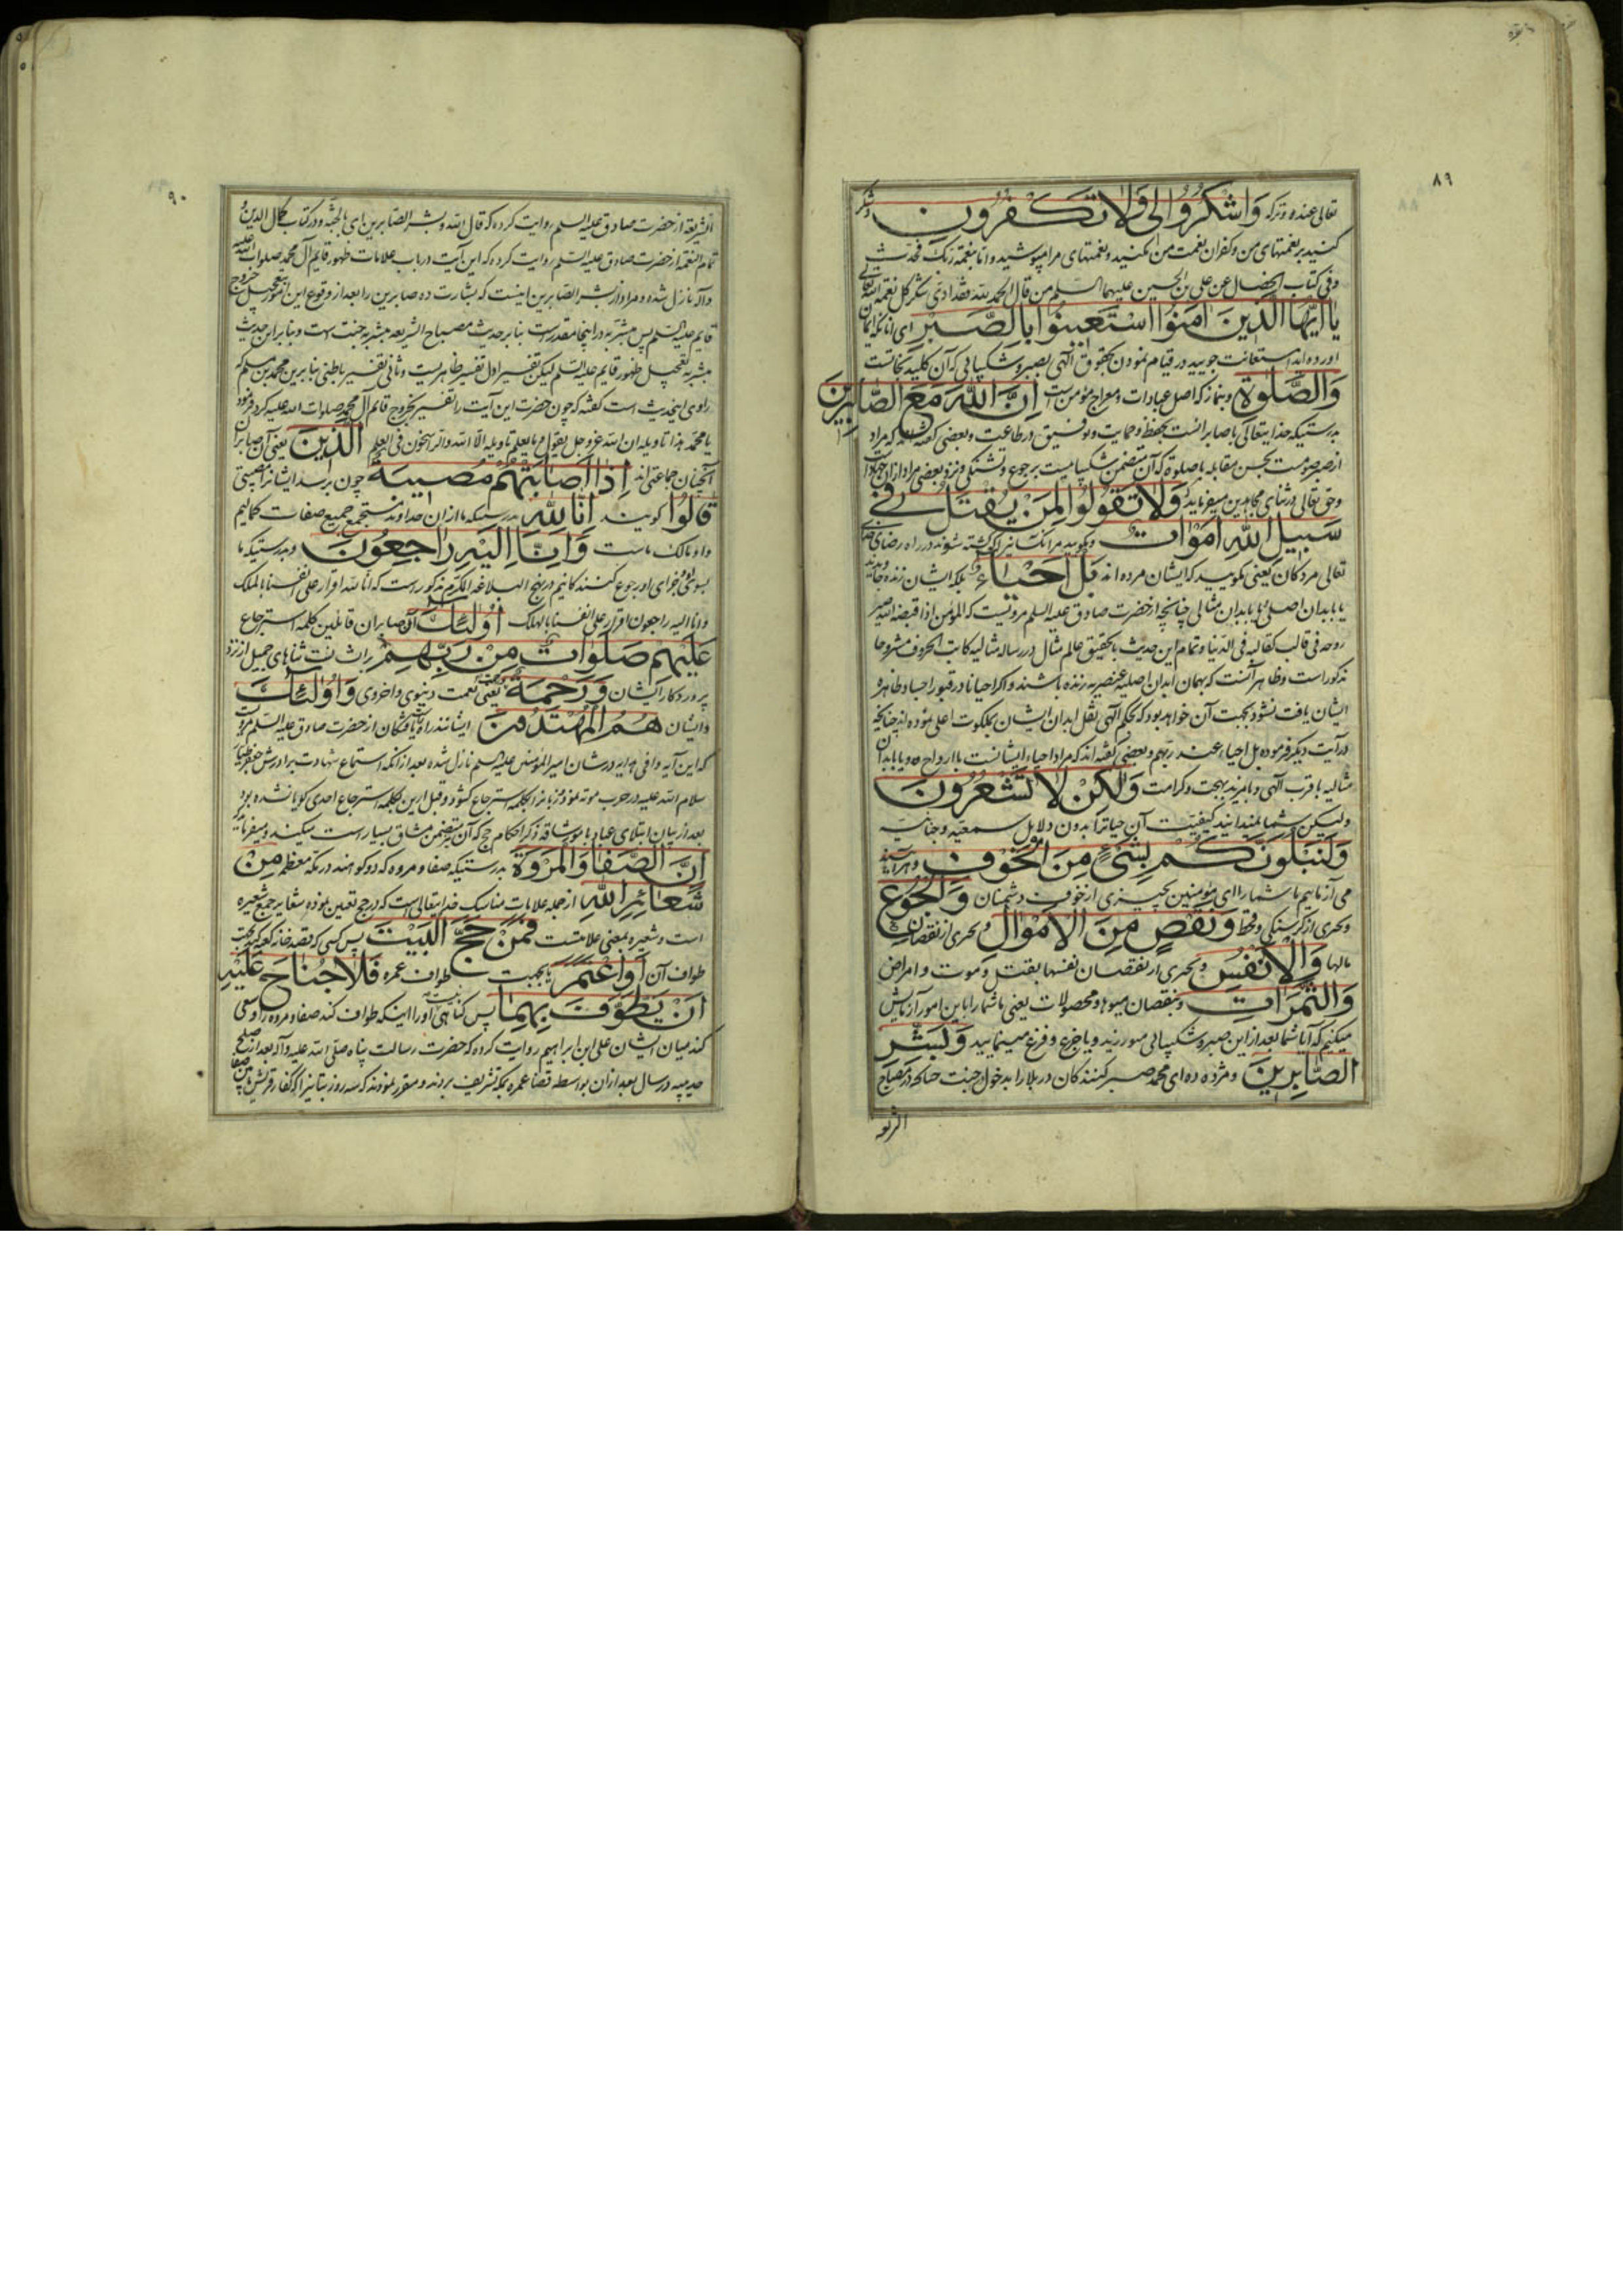 ٨٩
تعالی عنده و ترکه وَاشْكُرُوا لِي وَلَا تَكْفُرُونِ و شکر
کنید بر نعمتهای من و کفران نعمت من مکنید و نعمتهای مرا مپوشید و اما بنعمة ربک فحدث
وفی کتاب الخصال عن علی بن الحسین علیهما السلم من قال الحمد لله فقد ادی شکر کل نعمة الله تعالی
يَا أَيُّهَا الَّذِينَ آمَنُوا اسْتَعِينُوا بِالصَّبْرِ ای انانکه ایمان
اورده اید استعانت جویید در قیام نمودن بحقوق الهی بصبر و شکیبائی که آن کلید نجاتست
وَالصَّلٰوةِ و بنماز که اصل عبادات و معراج مؤمن است إِنَّ اللّٰهَ مَعَ الصَّابِرِينَ
بدرستیکه خدایتعالی با صابرانست بحفظ و حمایت و توفیق در طاعت و بعضی گفته‌اند که مراد
از صبر صومست بحسن مقابله با صلوة که آن متضمن شکیبائیست بر جوع و تشنگی و نزد بعضی مراد از آن جهاد است
وحق تعالی در ثنای مجاهدین میفرماید وَلَا تَقُولُوا لِمَنْ يُقْتَلُ فِي
سَبِيلِ اللّٰهِ أَمْوَاتٌ و مگویید مر انکسانیرا که کشته شوند در راه رضای خدای
تعالی مردکان یعنی مگویید که ایشان مرده اند بَلْ أَحْيَاءٌ بلکه ایشان زنده جاویدند
یا بابدان اصلی یا بابدان مثالی چنانچه از حضرت صادق علیه السلم مرویست که المؤمن اذا قبضه الله صیر
روحه فی قالب کقالبه فی الدنیا و تمام این حدیث با تحقیق عالم مثال در رساله مثالیه کاتب الحروف مشروحا
مذکور است و ظاهر آنست که بهمان ابدان اصلیه عنصریه زنده باشند و اگر احیانا در قبور اجساد طاهره
ایشان یافت نشود بجهت آن خواهد بود که بحکم الهی نقل ابدان ایشان بملکوت اعلی نموده اند چنانچه
در آیت دیگر فرموده بل احیاء عند ربهم و بعضی گفته اند که مراد احیاء ایشانست با ارواح و یا بابدان
مثالیه با قرب الهی و با مزید بهجت و کرامت وَلٰكِنْ لَا تَشْعُرُونَ
ولیکن شما نمیدانید کیفیت آن حیاترا بدون دلایل سمعیه و جنانیه
وَلَنَبْلُوَنَّكُمْ بِشَيْءٍ مِنَ الْخَوْفِ و هر آینه
می آزماییم ما شما را ای مؤمنین بچیزی از خوف دشمنان وَالْجُوعِ
و بچیزی از گرسنگی و قحط وَنَقْصٍ مِنَ الْأَمْوَالِ و بچیزی از نقصان
مالها وَالْأَنْفُسِ و بچیزی از نقصان نفسها بقتل و موت و امراض
وَالثَّمَرَاتِ و بنقصان میوها و محصولات یعنی ما شما را باین امور آزمایش
میکنیم که آیا شما بعد از این صبر و شکیبائی میورزید و یا جزع و فزع مینمایید وَبَشِّرِ
الصَّابِرِينَ و مژده ده ای محمد صبر کنندکان در بلا را بدخول جنت چنانکه در مصباح
الشریعه
٩٠
الشریعة از حضرت صادق علیه السلم روایت کرده که قال الله و بشر الصابرین بای بالجنة و در کتاب کمال الدین و
تمام النعمة از حضرت صادق علیه السلم روایت کرده که این آیت در باب علامات ظهور قایم آل محمد صلوات الله علیه
وآله نازل شده و مراد از بشر الصابرین اینست که بشارت ده صابرین را بعد از وقوع این امور بتعجیل خروج
قایم علیه السلم پس مبشر به در اینجا مقدرست بنا بر حدیث مصباح الشریعه مبشر به جنت است و بنا بر این حدیث
مبشر به تعجیل ظهور قایم علیه السلم لیکن تفسیر اول تفسیر ظاهریست و ثانی تفسیر باطنی بنا برین محمد بن مسلم که
راوی اینحدیث است گفته که چون حضرت این آیت را تفسیر بخروج قائم آل محمد صلوات الله علیه کرد فرمود
یا محمد هذا تاویله ان الله عز وجل یقول و ما یعلم تاویله الا الله والراسخون فی العلم الَّذِينَ یعنی آن صابران
آنچنان جماعتی اند إِذَا أَصَابَتْهُمْ مُصِيبَةٌ چون برسد ایشانرا مصیبتی
قَالُوا گویند إِنَّا لِلّٰهِ بدرستیکه ما از ان خداوند مستجمع جمیع صفات کمالیم
و او مالک ماست وَإِنَّا إِلَيْهِ رَاجِعُونَ و بدرستیکه ما
بسوی جزای او رجوع کنندکانیم در نهج البلاغه المکرم مذکور است که انا لله اقرار علی انفسنا بالملک
و انا الیه راجعون اقرار علی انفسنا بالهلک أُولٰئِكَ آن صابران قائلین کلمه استرجاع
عَلَيْهِمْ صَلَوَاتٌ مِنْ رَبِّهِمْ بر ایشانست ثناهای جمیل از نزد
پروردکار ایشان وَرَحْمَةٌ یعنی نعمت دنیوی و اخروی وَأُولٰئِكَ
و ایشان هُمُ الْمُهْتَدُونَ ایشانند راه یافتکان از حضرت صادق علیه السلم مرویست
که این آیه وافی هدایه در شان امیر المؤمنین علیه السلم نازل شده بعد از انکه استماع شهادت برادرش جعفر طیار
سلام الله علیه در حرب موته نمود و زبانرا بکلمه استرجاع گشود و قبل ازین بکلمه استرجاع احدی گویا نشده بود
بعد از بیان ابتلای عباد بامور شاقه ذکر احکام حج که آن متضمن مشاق بسیار است میکند و میفرماید
إِنَّ الصَّفَا وَالْمَرْوَةَ بدرستیکه صفا و مروه که دو کوهند در مکه معظمه مِنْ
شَعَائِرِ اللّٰهِ از جمله علامات مناسک خدایتعالی است که در حج تعیین نموده شعایر جمع شعیره
است و شعیره بمعنی علامتست فَمَنْ حَجَّ الْبَيْتَ پس کسی که قصد خانه کعبه کند بجهت
طواف آن أَوِ اعْتَمَرَ یا بجهت طواف عمره فَلَا جُنَاحَ عَلَيْهِ
أَنْ يَطَّوَّفَ بِهِمَا پس گناهی نیست او را اینکه طواف کند صفا و مروه را و سعی
کند میان ایشان علی ابن ابراهیم روایت کرده که حضرت رسالت پناه صلی الله علیه وآله بعد از صلح
حدیبیه در سال بعد از ان بواسطه قضا عمره بمکه تشریف بردند و مقرر نمودند که سه روز بتانیرا که کفار قریش